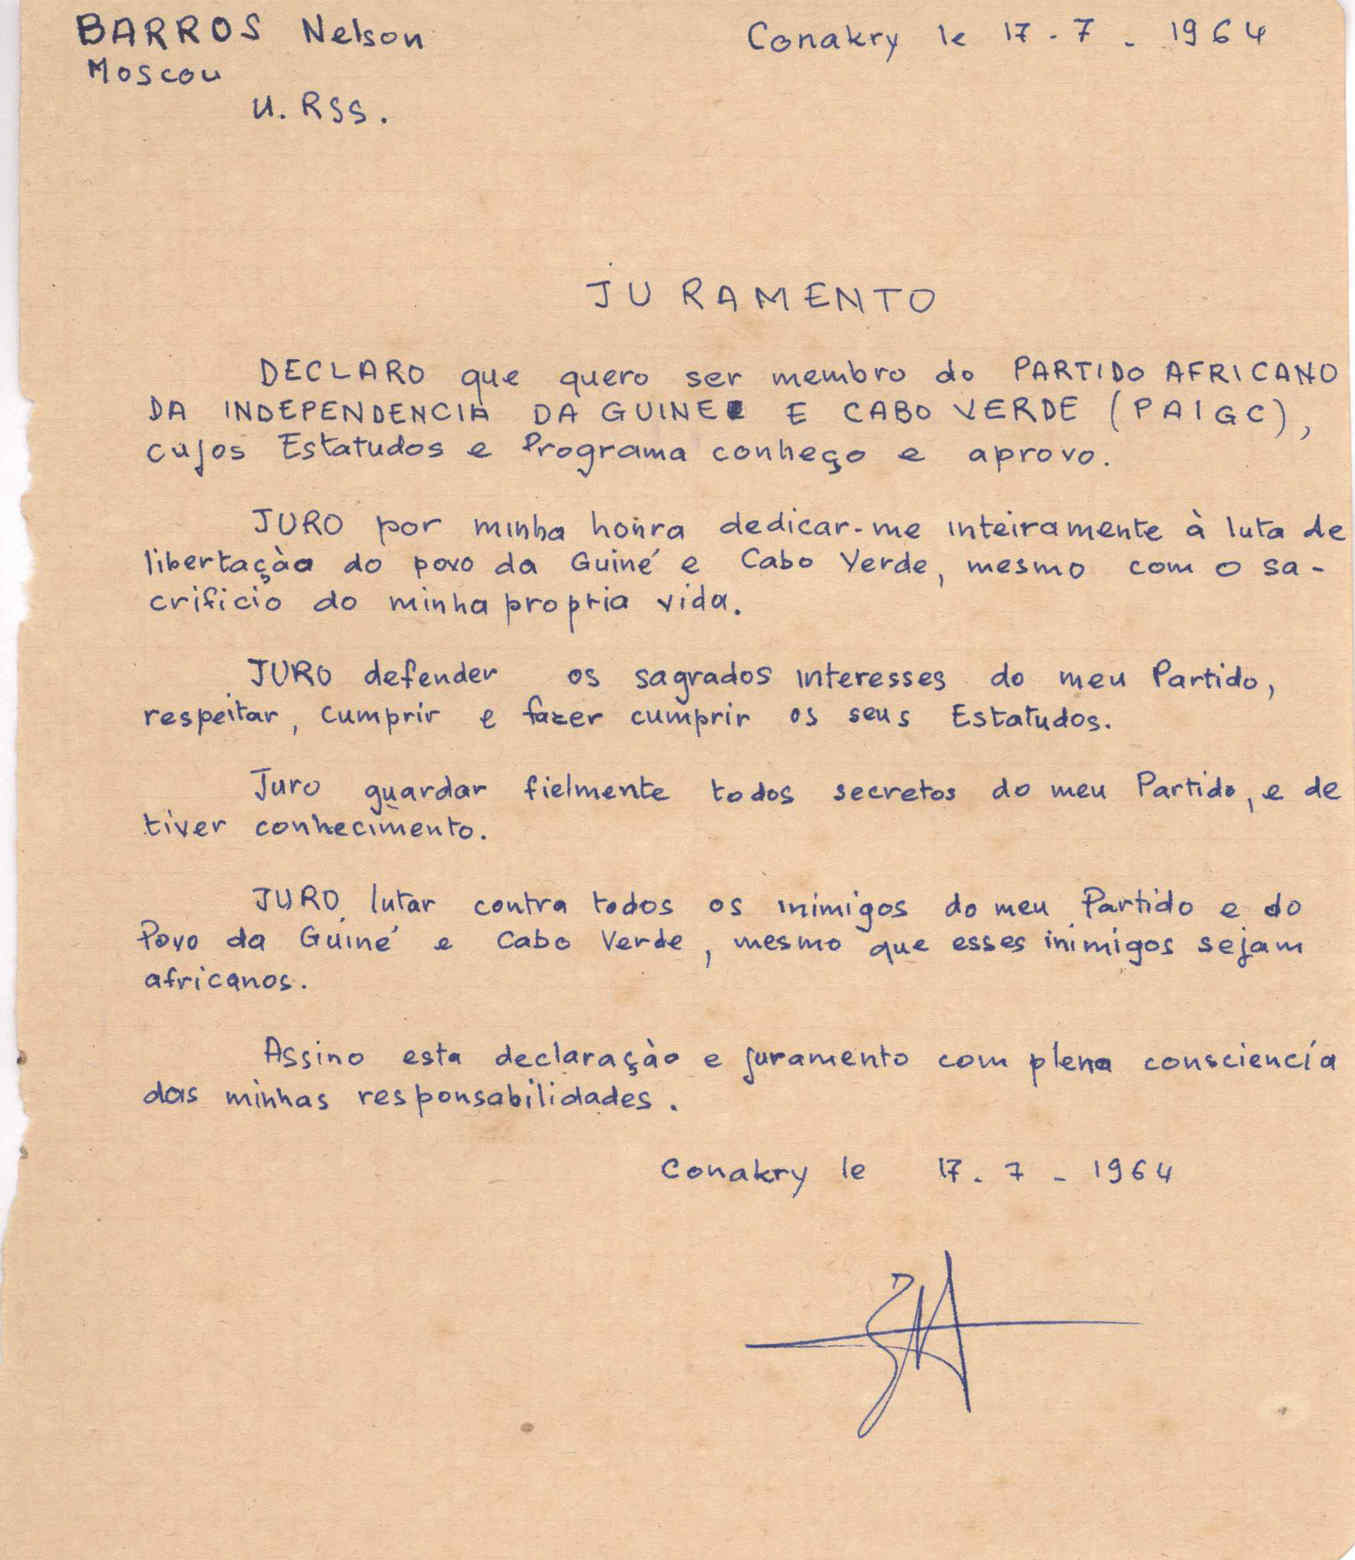 BARROS Nelson
Conakry le 17-7-1964
Moscou
U.RSS.
JURAMENTO
DECLARO que quero ser membro do PARTIDO AFRICANO
DA INDEPENDENCIA DA GUINE E CABO VERDE (PAIGC),
cujos Estatudos e Programa conheço e aprovo.
JURO por minha honra dedicar-me inteiramente à luta de
libertaçào do povo da Guiné e Cabo Verde, mesmo com o sa-
crificio do minha propria vida.
JURO defender os sagrados interesses do meu Partido,
respeitar, cumprir e fazer cumprir os seus Estatudos.
Juro guardar fielmente todos secretos do meu Partido, e de
tiver conhecimento.
JURO lutar contra todos os inimigos do meu Partido e do
Povo da Guiné e Cabo Verde, mesmo que esses inimigos sejam
africanos.
Assino esta declaraçào e juramento com plena consciencía
das minhas responsabilidades.
Conakry le 17-7-1964